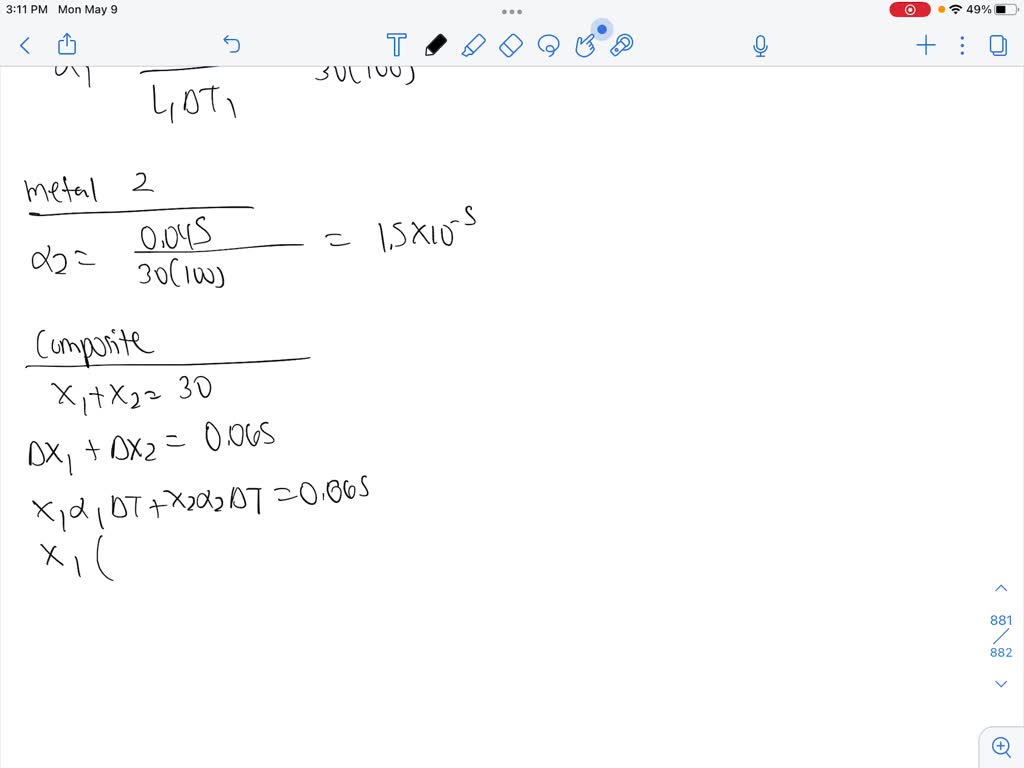 3:11 PM Mon May 9
49%
T
α1 30(100)
L1 DT1
metal 2
α2 = 0.045 / 30(100) = 1.5X10^-5
Composite
x1 + x2 = 30
DX1 + DX2 = 0.065
x1 α1 DT + x2 α2 DT = 0.065
x1 (
881
882